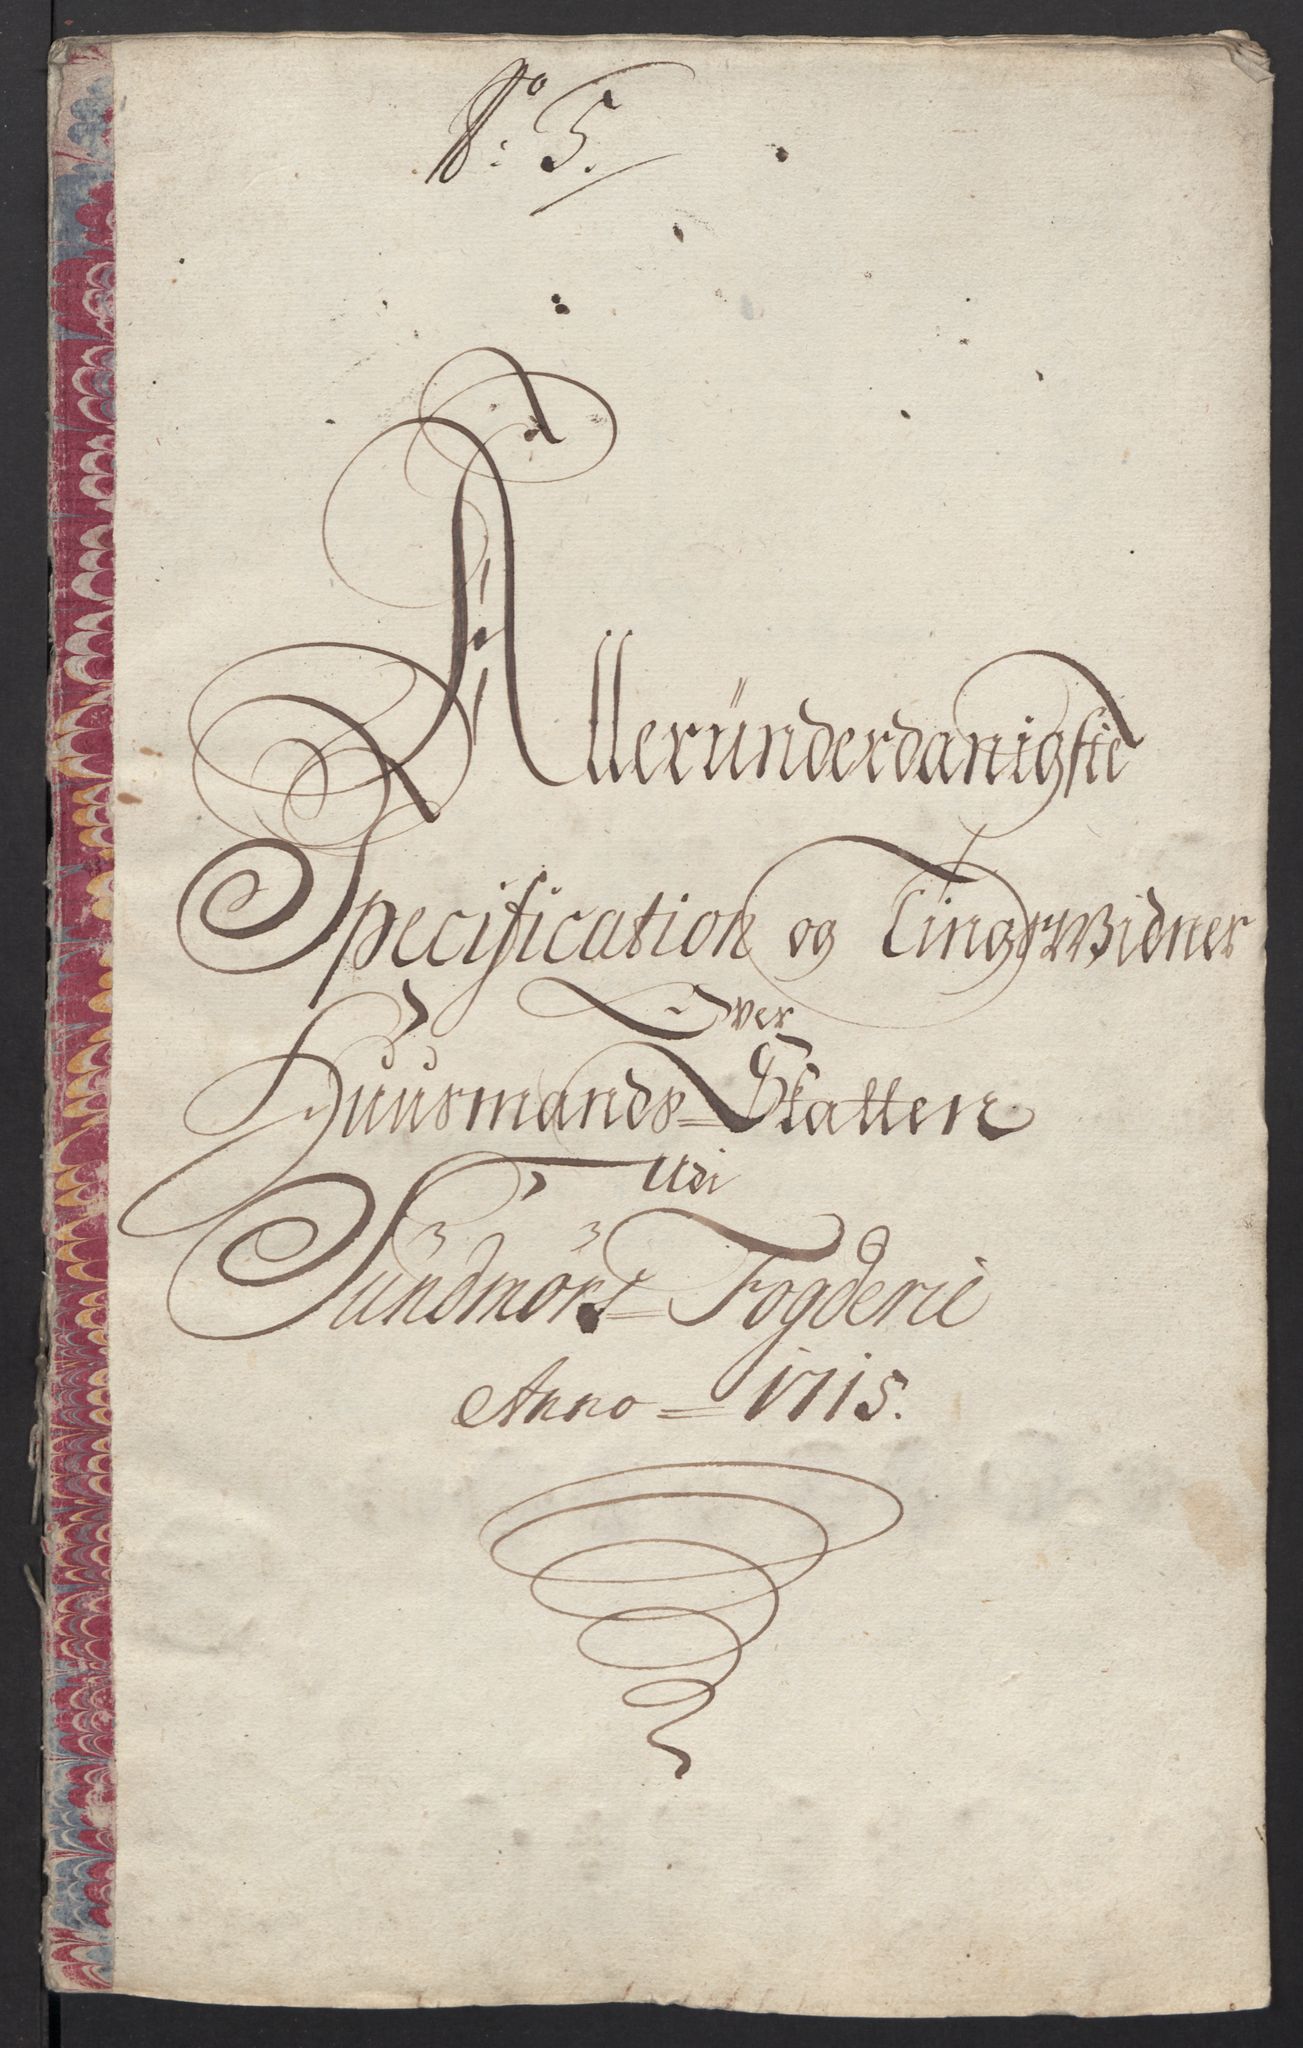 No: 5.
Alleründerdanigste
Specification og TingsWidner
Over
Huusmands=Skatten
Udi
Sündmörs=Fogderie
Anno=1715.